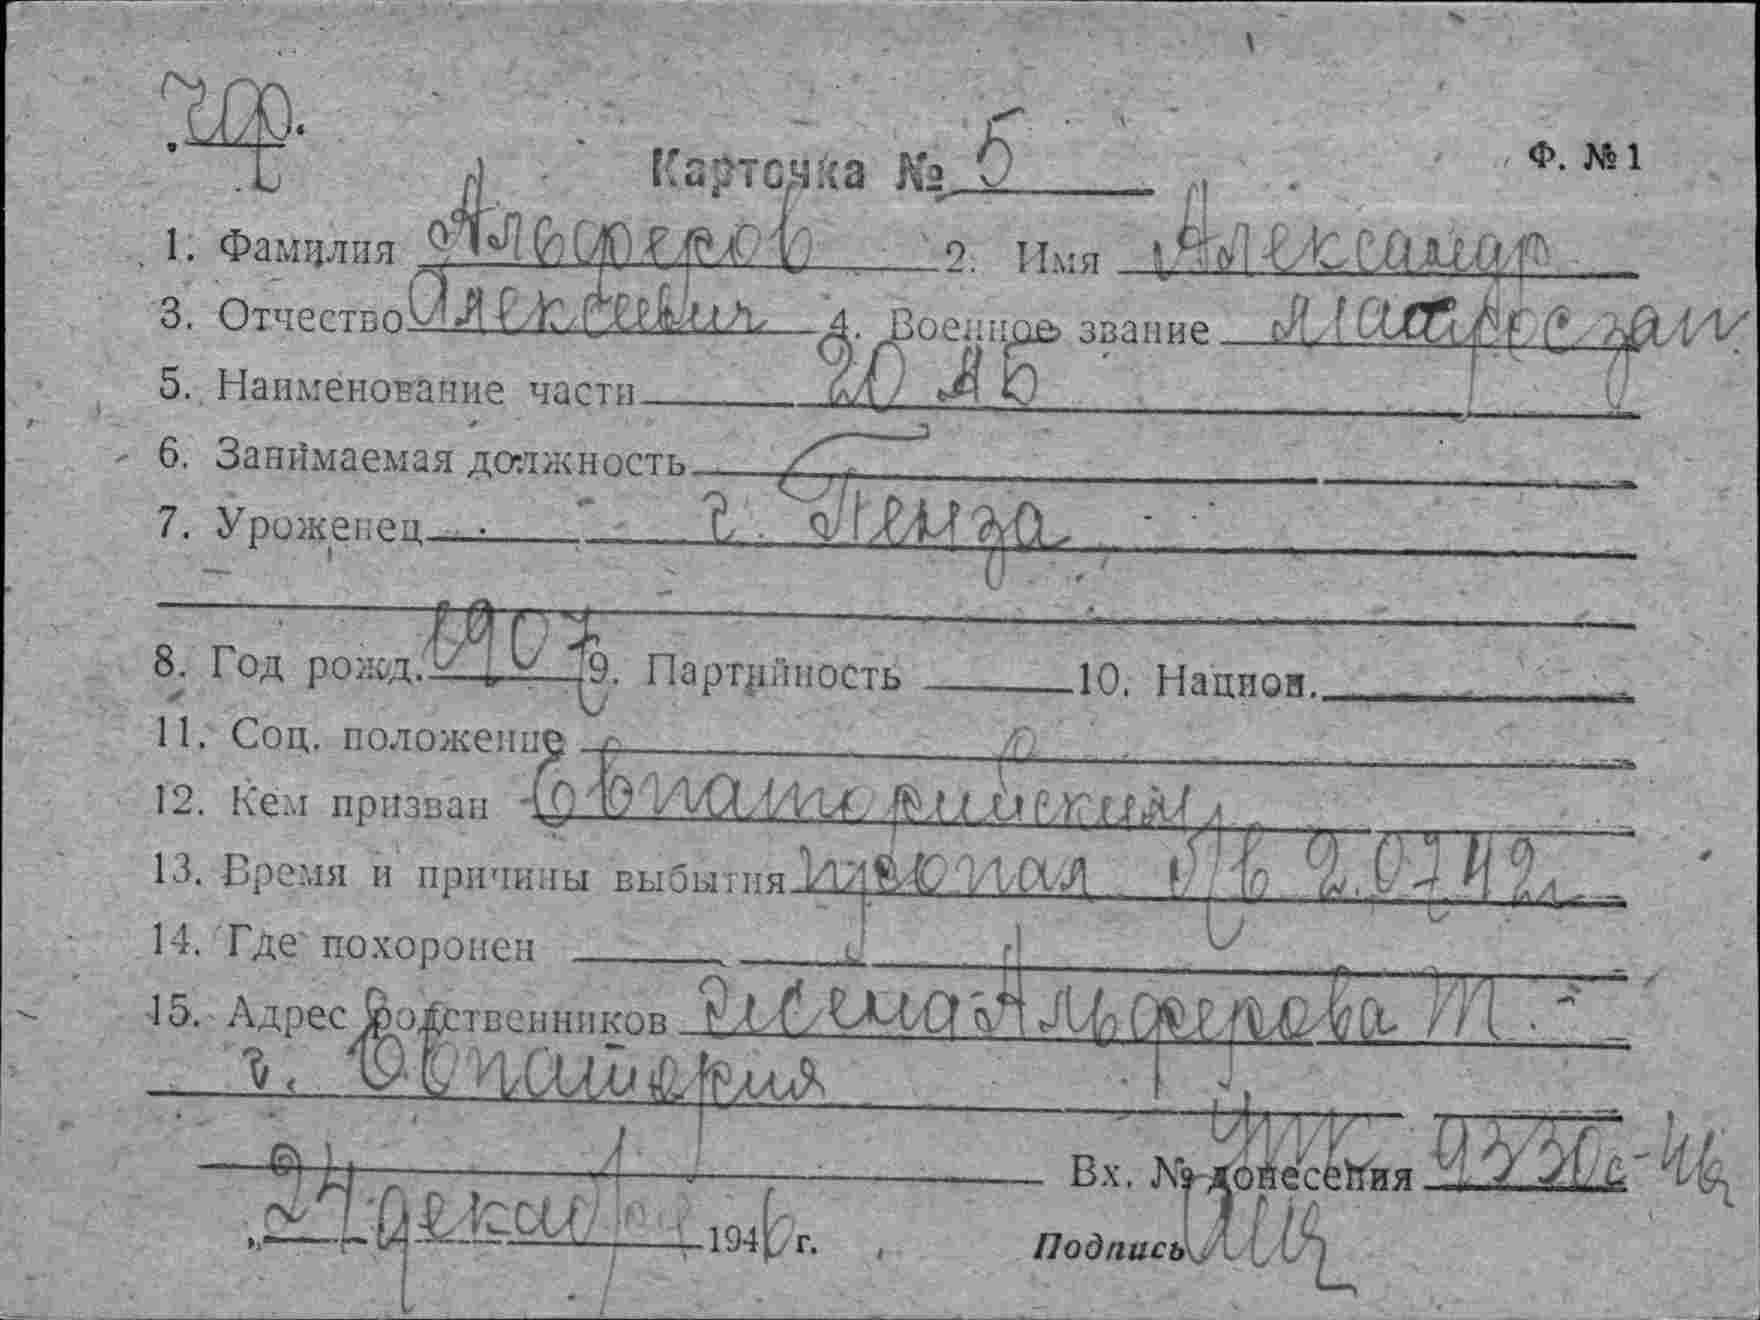 Ф. №1
Карточка № 5
1. Фамилия Алферов 2. Имя Александр
3. Отчество Алексеевич 4. Военное звание матрос зап
5. Наименование части 20 АБ
6. Занимаемая должность
7. Уроженец г. Пенза
8. Год рожд. 1907 9. Партийность 10. Национ.
11. Соц. положение
12. Кем призван Евпаторийским
13. Время и причины выбытия пропал б/в 2.07.42
14. Где похоронен
15. Адрес родственников жена Алферова Т.
г. Евпатория
Вх. № донесения 9330с-46
„24 декабря 1946 г. Подпись